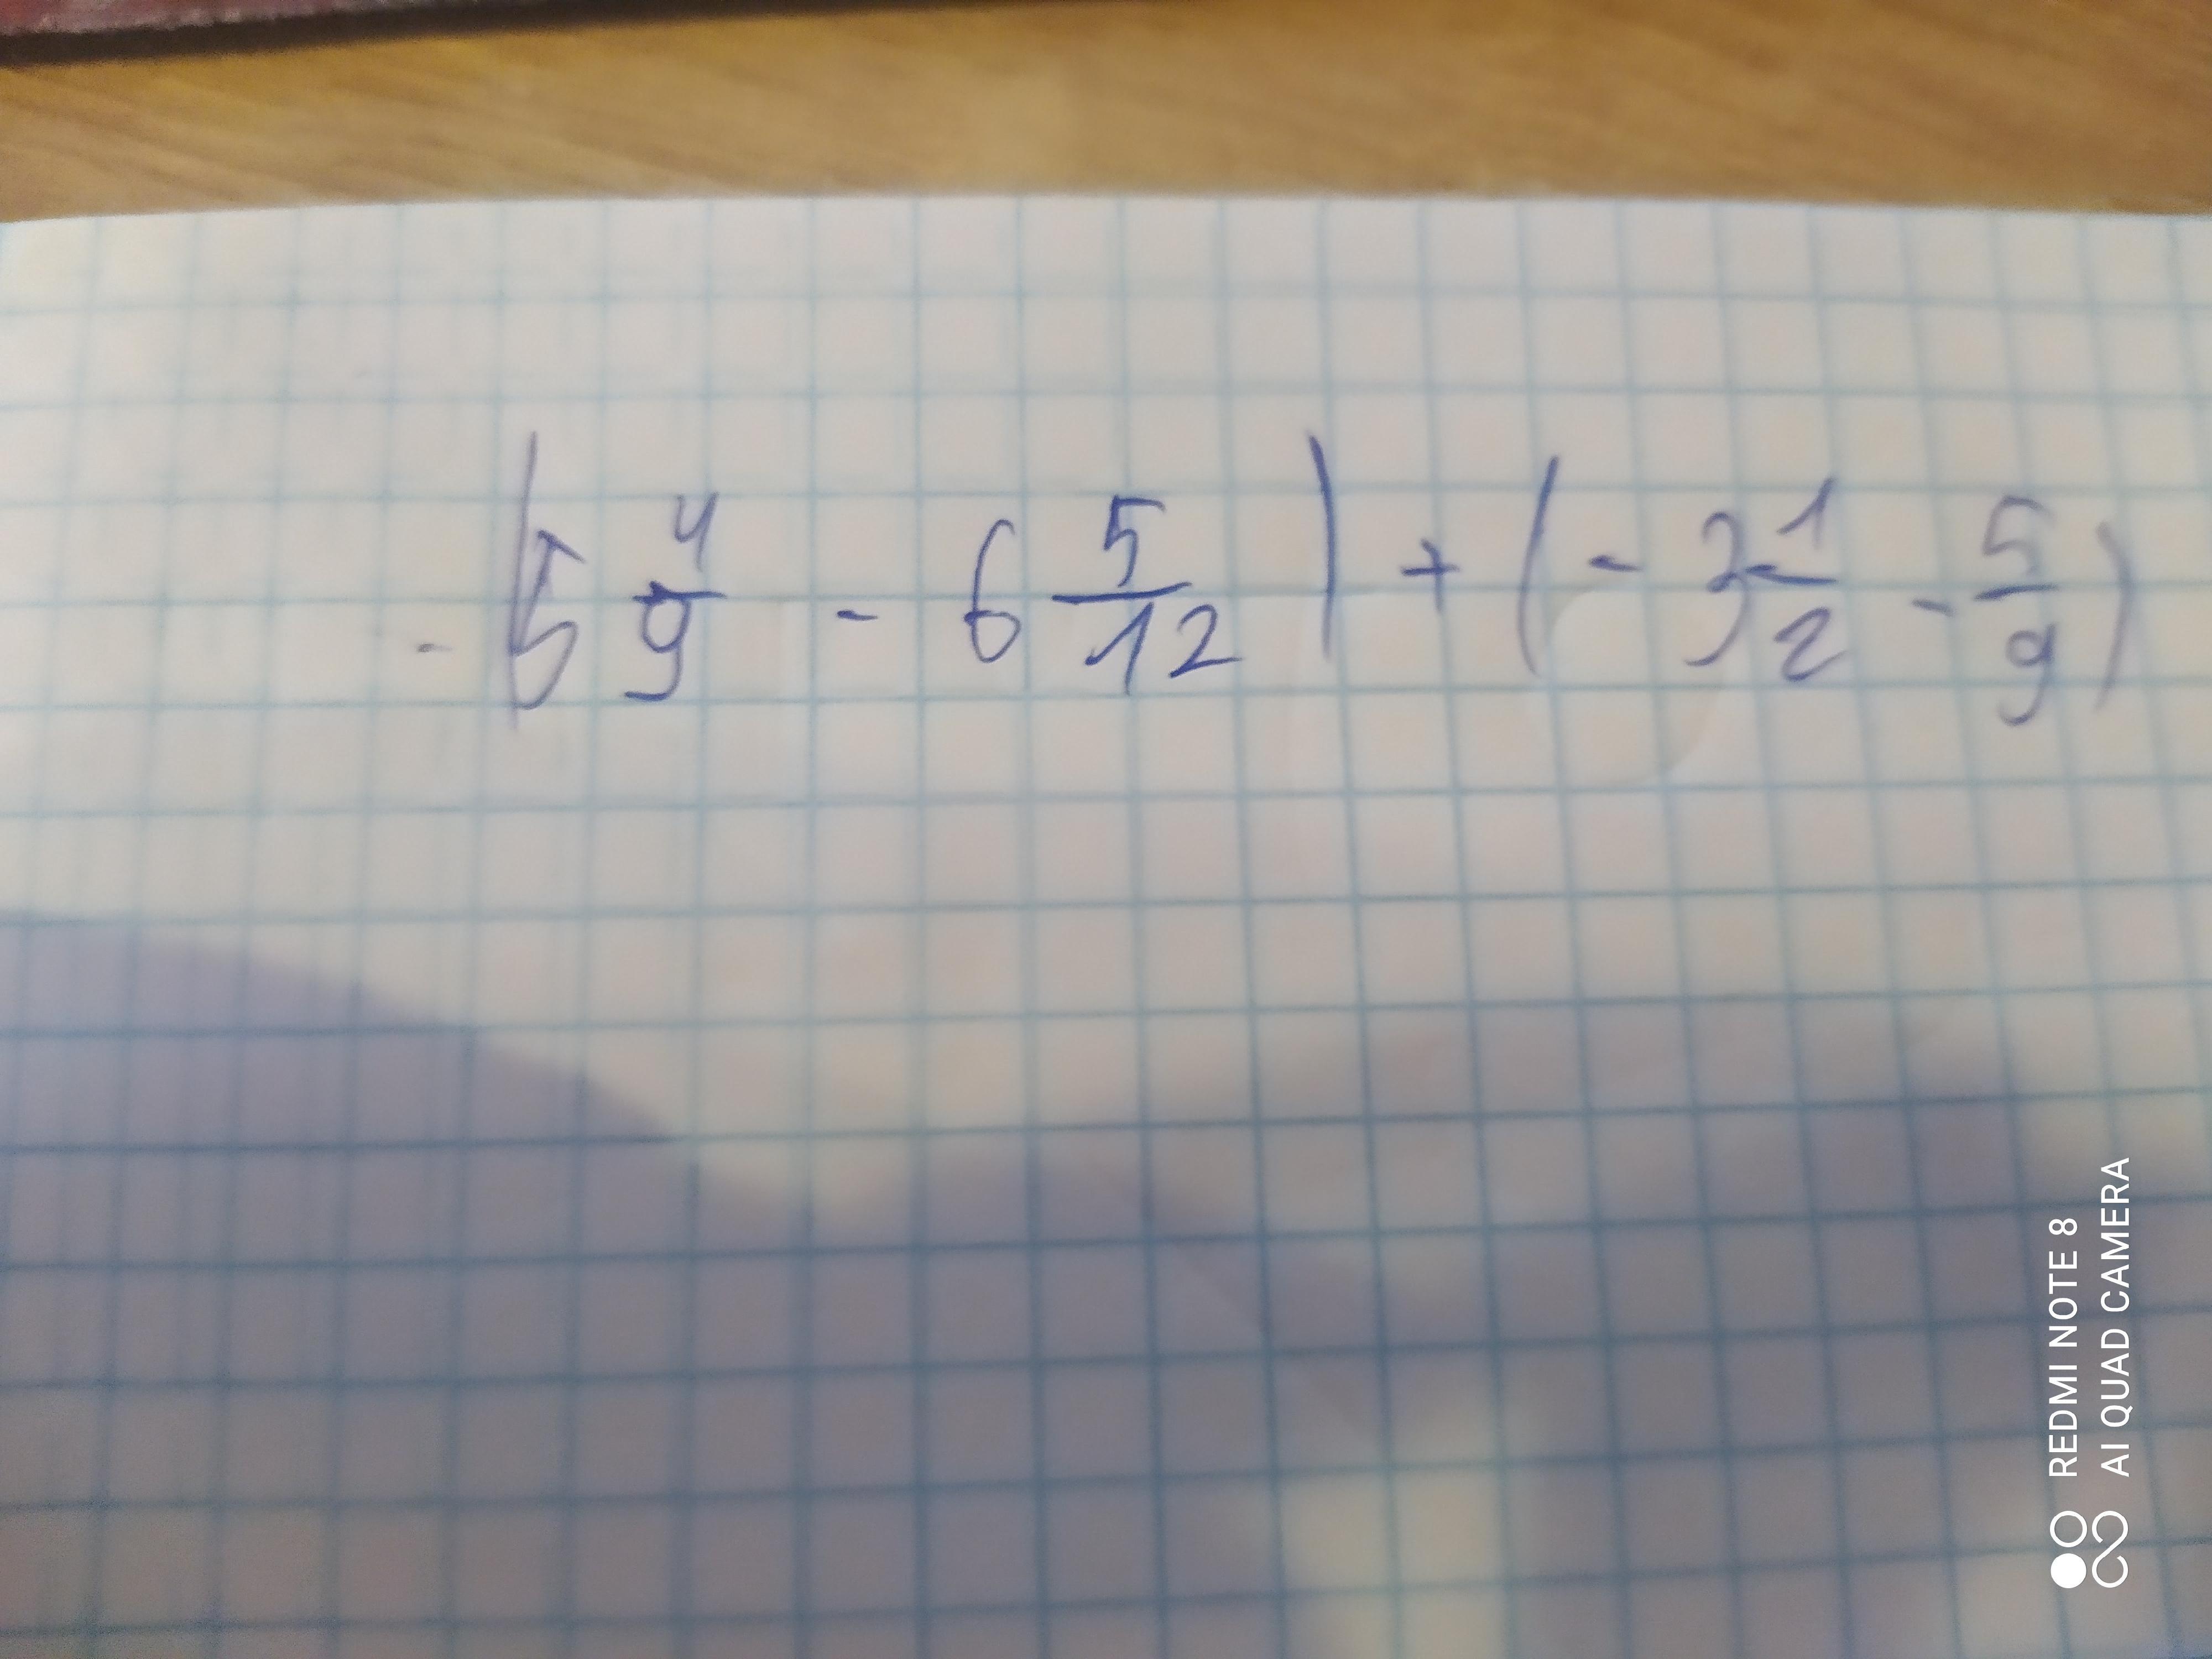 - (5 4/9 - 6 5/12) + (- 3 1/2 - 5/9)
REDMI NOTE 8
AI QUAD CAMERA